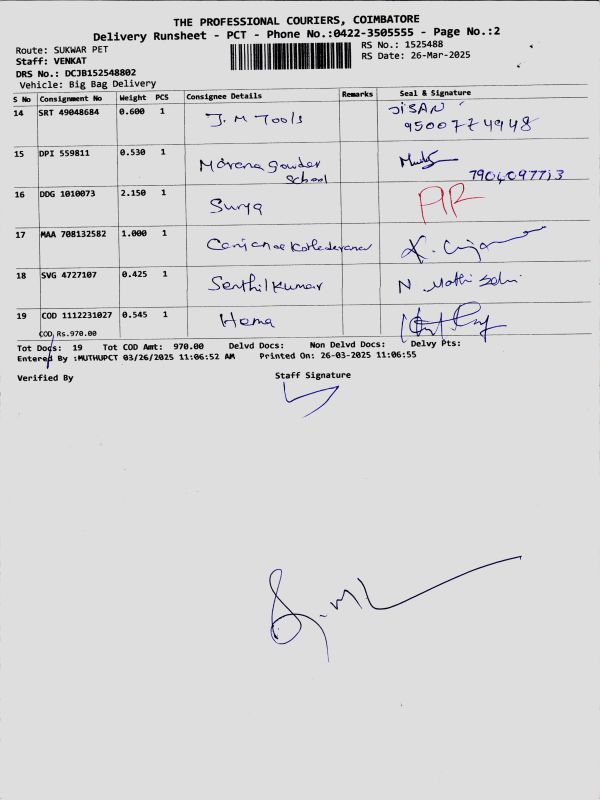 THE PROFESSIONAL COURIERS, COIMBATORE
Delivery Runsheet - PCT - Phone No.:0422-3505555 - Page No.:2
Route: SUKWAR PET
RS No.: 1525488
Staff: VENKAT
RS Date: 26-Mar-2025
DRS No.: DCJB152548802
Vehicle: Big Bag Delivery
S No Consignment No Weight PCS Consignee Details Remarks Seal & Signature
14 SRT 49048684 0.600 1 J. M Tools JISAN
9500774948
15 DPI 559811 0.530 1 Morena gowder
School
16 DDG 1010073 2.150 1 Surya
17 MAA 708132582 1.000 1
18 SVG 4727107 0.425 1 Senthil kumar N. Mathi Selvi
19 COD 1112231027 0.545 1 Hema
COD, Rs.970.00
Tot Docs: 19 Tot COD Amt: 970.00 Delvd Docs: Non Delvd Docs: Delvy Pts:
Entered By :MUTHUPCT 03/26/2025 11:06:52 AM Printed On: 26-03-2025 11:06:55
Verified By Staff Signature